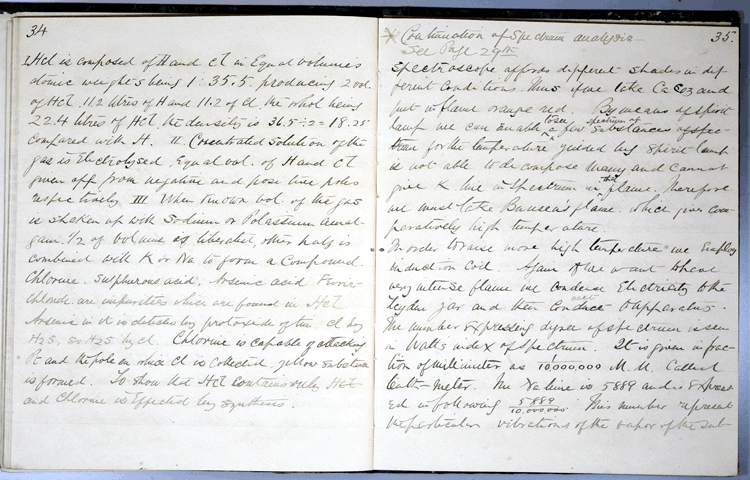 34
I. HCl is composed of H and Cl in Equal volumes
atomic weights being 1 : 35.5. producing 2 vol.
of HCl. 11.2 litres of H and 11.2 of Cl. the whol being
22.4 litres of HCl. the densitz is 36.5÷2 = 18.25
compared with H. II. Cocentrated Solution of the
gas is Electrolysed. Equal vol. of H and Cl
given off from negative and positive poles
respectively III When known vol. of the gas
is shaken up with Sodium or Potassium amal-
gam. 1/2 of volume is liberated, other half is
combined with K or Na to form a Compound.
Chlorine. Sulphurous acid. Arsenic acid Ferric-
chloride are impurities which are found in HCl
Arsenic in it is detected by protoxide of tin. cl by
H2S, SO2 by cl. Chlorine is capable of attacking
Pt and the pole on which Cl is collected, yellow substance
is formed. To show that HCl contains only H
and Chlorine is Effected by synthesis.
35.
X Continuation of Spectrum analysis
See Page 29th
Spectroscope affords different shades in dif-
ferent Conditions. Thus if we take Ca CO3 and
put in flame orange red. By means of spirit
lamp we can enable to see a few substances spectrum of spec-
trum for the temperature yielded by spirit lamp
is not able to decompose many and cannot
give K line in Spectrum in that flame. therefore
we must take Bunsen's flame. which gives com-
paratively high temperature.
In order to raise more high temperature we Employ
induction Coil. Again if we want to have
very intense flame we condense Electricity to the
Leyden jar and then conduct to apparatus.
The number Expressing degree of spectrum is seen
in Watts index of spectrum. It is given in frac-
tion of millimeter as 1/10,000,000 M.M. Called
tenth-meter. The Na line is 5889 and is Express-
ed in following 5889/10.000.000. This number represent
the particular vibrations of the vapor of the sub-